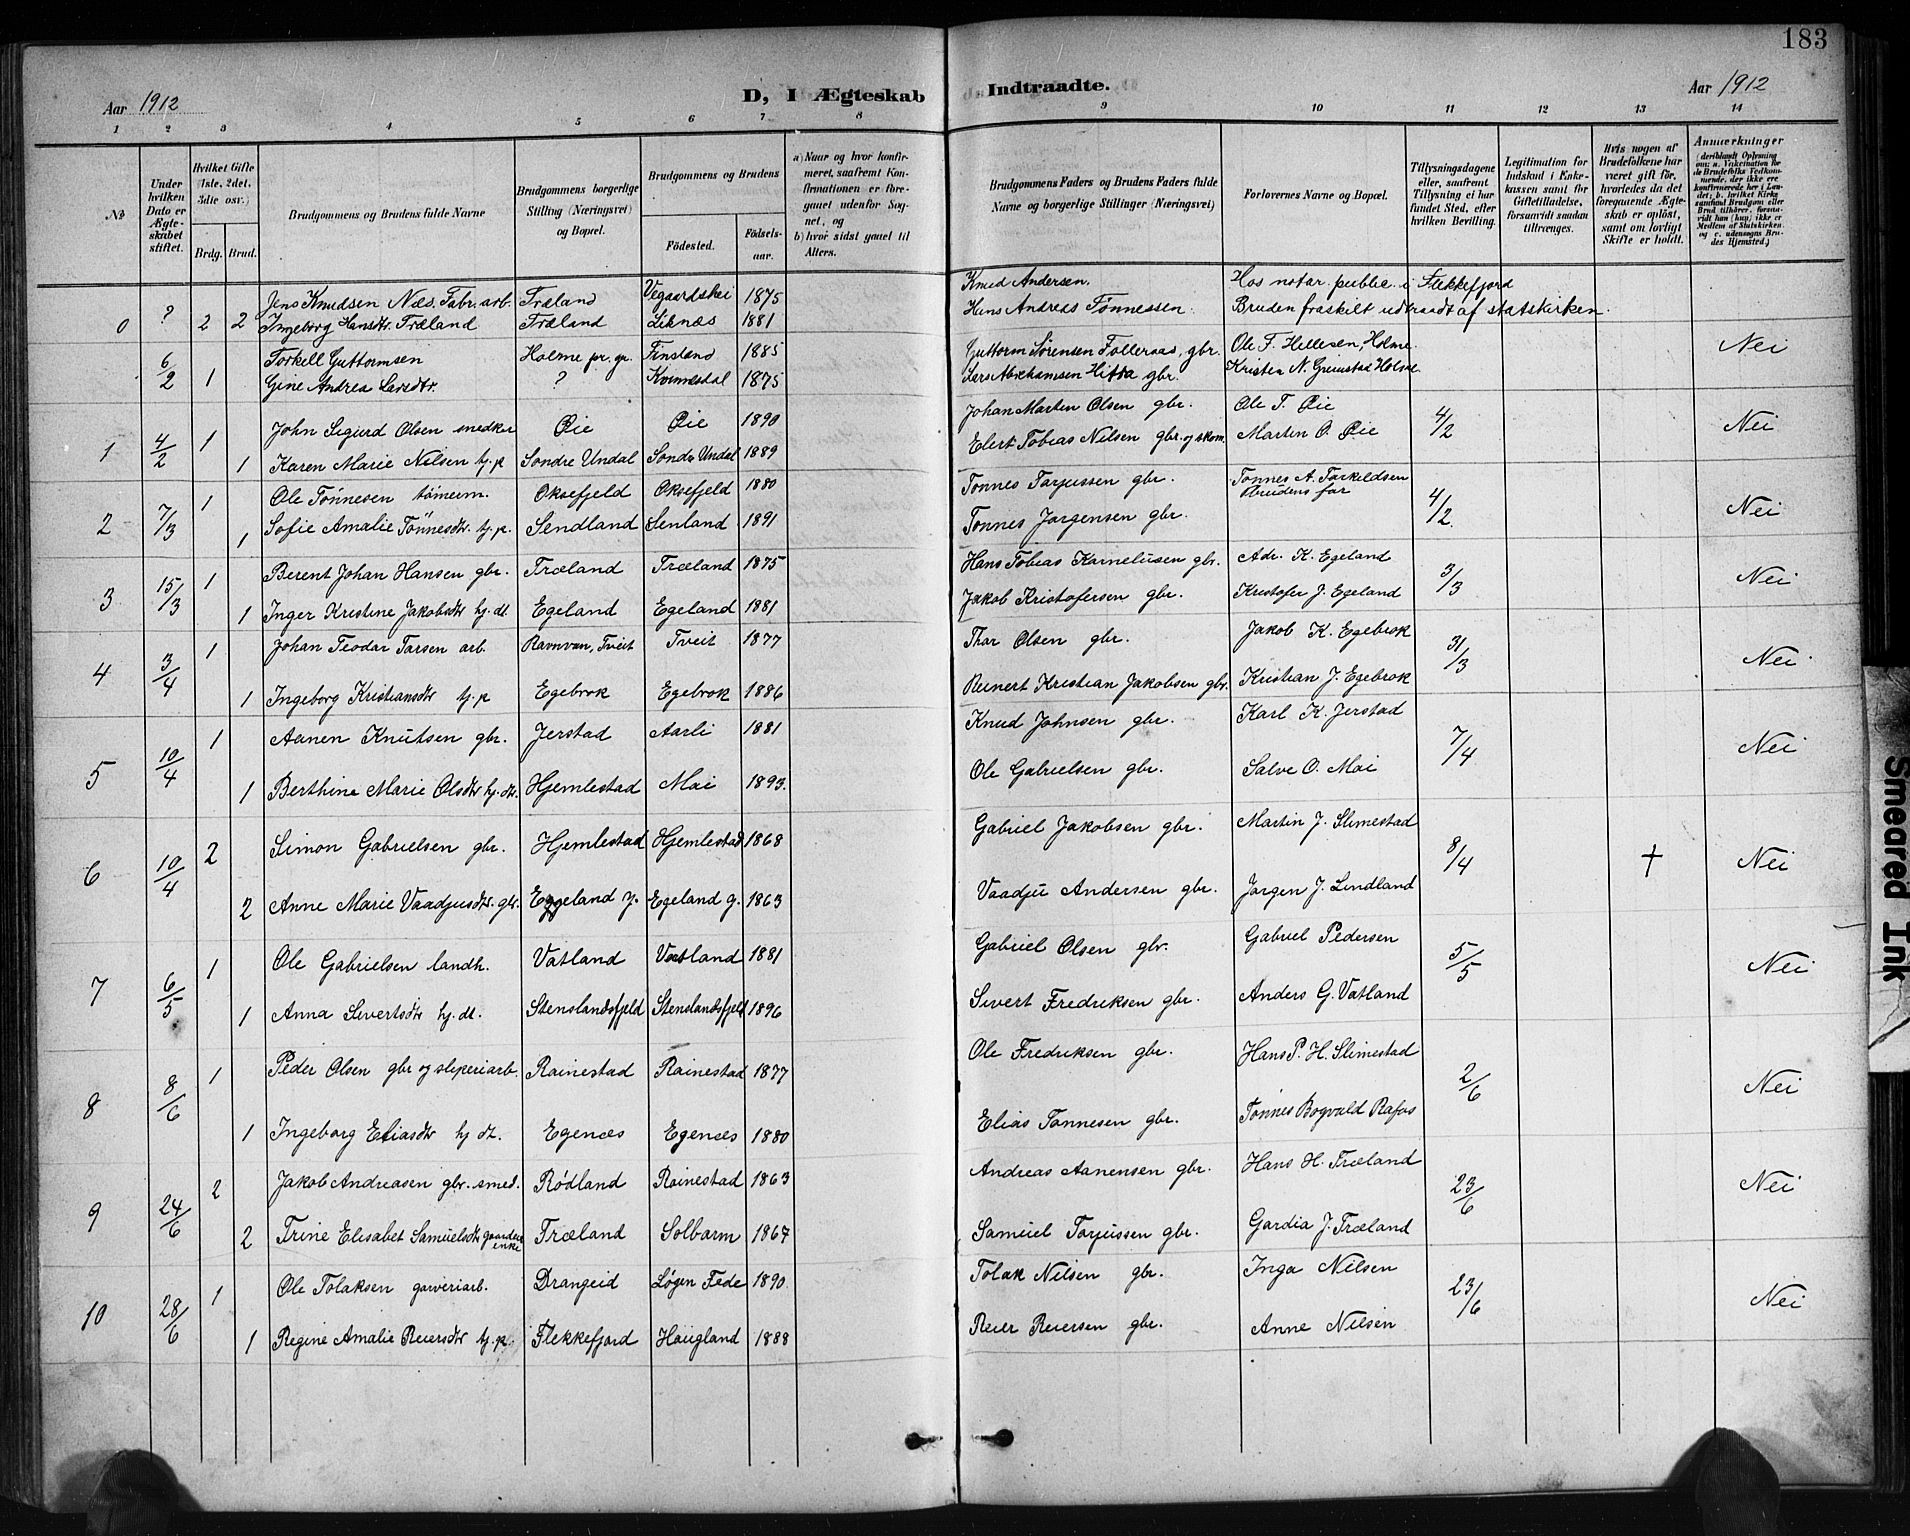 183
Aar 1912
D, I Ægteskab Indtraadte.
Aar 1912
1 2 3 4 5 6 7 8 9 10 11 12 13 14
No
Under hvilken Dato er Ægteskabet stiftet.
Hvilket Gifte (1ste, 2det, 3die osv.)
Brdg. Brud.
Brudgommens og Brudens fulde Navne
Brudgommens borgerlige Stilling (Næringsvei) og Bopæl.
Brudgommens og Brudens
Födested. Födsels-aar.
a) Naar og hvor konfirmeret, saafremt Konfirmationen er foregaaet udenfor Sognet, og
b) hvor sidst gaaet til Alters.
Brudgommens Faders og Brudens Faders fulde Navne og borgerlige Stillinger (Næringsvei)
Forlovernes Navne og Bopæl.
Tillysningsdagene eller, saafremt Tillysning ei har fundet Sted, efter hvilken Bevilling.
Legitimation for Indskud i Enkekassen samt for Giftetilladelse, forsaavidt saadan tiltrænges.
Hvis nogen af Brudefolkene har været gift för, hvorledes da det foregaaende Ægteskab er oplöst, samt om lovligt Skifte er holdt.
Anmærkninger
0 ? 2 2 Jens Knudsen Næs. Fabr. arb. Træland Vegaardshei 1875 Knud Andersen. Hos notar. public. i Flekkefjord
Ingeborg Hansdtr. Træland Træland Liknæs 1881 Hans Andreas Tønnessen Bruden fraskilt udtraadt af statskirken.
6/2 1 Torkell Guttormsen Holme pr. gr. Finsland 1885 Guttorm Sørensen Folleraas, gbr. Ole F. Hellesen, Holme. Nei
Gine Andrea Larsdtr. ? Konnesdal 1875 Lars Abrahamsen Hitta gbr. Kristen N. Greimstad Holme
1 4/2 1 John Sigurd Olsen snedker Øie Øie 1890 Johan Martin Olsen gbr. Ole T. Øie 4/2 Nei
1 Karen Marie Nilsen tj. p Søndre Undal Søndr Undal 1889 Elert Tobias Nilsen gbr. og skom. Martin O. Øie
2 7/3 1 Ole Tönnesen tömerm. Oksefjeld Oksefjeld 1880 Tonnes Tarjussen gbr. Tonnes A. Torkeldsen 4/2. Nei
Brudens far
1 Sofie Amalie Tönnesdtr. tj. p. Sendland Senland 1891 Tonnes Jorgensen gbr.
3 15/3 1 Berent Johan Hansen gbr. Træland Træland 1875 Hans Tobias Kornelusen gbr. Adr. K. Egeland 3/3 Nei
1 Inger Kristine Jakobsdtr hj. dt. Egeland Egeland 1881 Jakob Kristofersen gbr. Kristofer J. Egeland
4 3/4 1 Johan Teodor Tarsen arb. Ravnvan, Tveit Tveit 1877 Thor Olsen gbr. Jakob K. Egebrok 31/3 Nei
1 Ingeborg Kristiansdtr tj. p Egebrok Egebrok 1886 Reinert Kristian Jakobsen gbr. Kristian J. Egebrok
5 10/4 1 Aanen Knutsen gbr. Jerstad Aarli 1881 Knud Johnsen gbr. Karl K. Jerstad 7/4 Nei
1 Berthine Marie Olsdtr hj. dt. Hjemlestad Moi 1893. Ole Gabrielsen gbr. Salve O. Moi
6 10/4 2 Simon Gabrielsen gbr. Hjemlestad Hjemlestad 1868 Gabriel Jakobsen gbr. Martin J. Slimestad 8/4 † Nei
2 Anne Marie Vaadjusdtr. gbr. Egeland y. Egeland g. 1863 Vaadju Andersen gbr. Jorgen J. Lindland
7 6/5 1 Ole Gabrielsen landh. Vatland Vatland 1881 Gabriel Olsen gbr. Gabriel Pedersen 5/5 Nei
1 Anna Sivertsdtr hj. dt. Stenslandsfjeld Stenslandsfjeld 1896 Sivert Fredriksen gbr. Anders G. Vatland
8 8/6 1 Peder Olsen gbr og sliperiarb. Rainestad Rainestad 1877 Ole Fredriksen gbr. Hans P. H. Slimestad 2/6 Nei
1 Ingeborg Eliasdtr hj dt. Egenæs Egenæs 1880 Elias Tonnesen gbr. Tonnes Bogvald Rafos
9 24/6 2 Jakob Andreasen gbr. smed. Rødland Rainestad 1863 Andreas Aanensen gbr. Hans H. Træland 23/6 Nei
2 Trine Elisabet Samuelsdtr gaardenke Træland Solbarm 1867 Samuel Tarjussen gbr. Gardia J. Træland
10 28/6 1 Ole Tolaksen garveriarb. Drangeid Løgen Fede 1890. Tolak Nilsen gbr. Inga Nilsen 23/6 Nei
1 Regine Amalie Reiersdtr tj. p. Flekkefjord Haugland 1888 Reier Reiersen gbr. Anne Nilsen
Smeared Ink